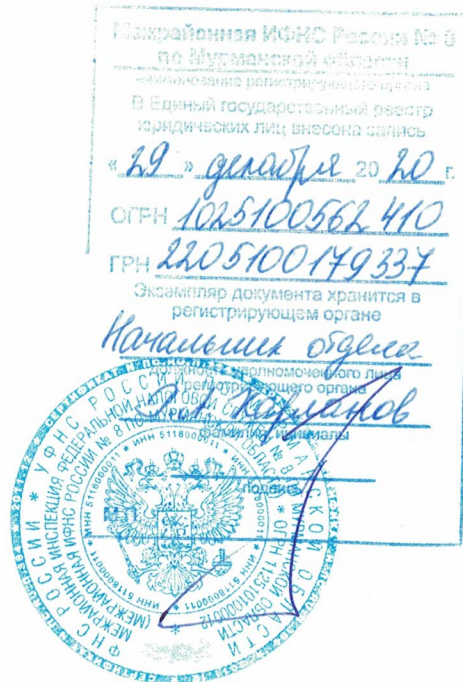 Межрайонная ИФНС России № 8
по Мурманской области
наименование регистрирующего органа
В Единый государственный реестр
юридических лиц внесена запись
« 29 » декабря 20 20 г.
ОГРН 1025100562410
ГРН 2205100179337
Экземпляр документа хранится в
регистрирующем органе
Начальник отдела
должность уполномоченного лица
регистрирующего органа
фамилия, инициалы
подпись
М.П.
ФНС РОССИИ * УФНС РОССИИ
МУРМАНСКОЙ ОБЛАСТИ
МЕЖРАЙОННАЯ ИНСПЕКЦИЯ ФЕДЕРАЛЬНОЙ НАЛОГОВОЙ
(МЕЖРАЙОННАЯ ИФНС РОССИИ № 8 ПО МУРМАНСКОЙ ОБЛАСТИ)
* ИНН 5118000011 * ИНН 5118000011